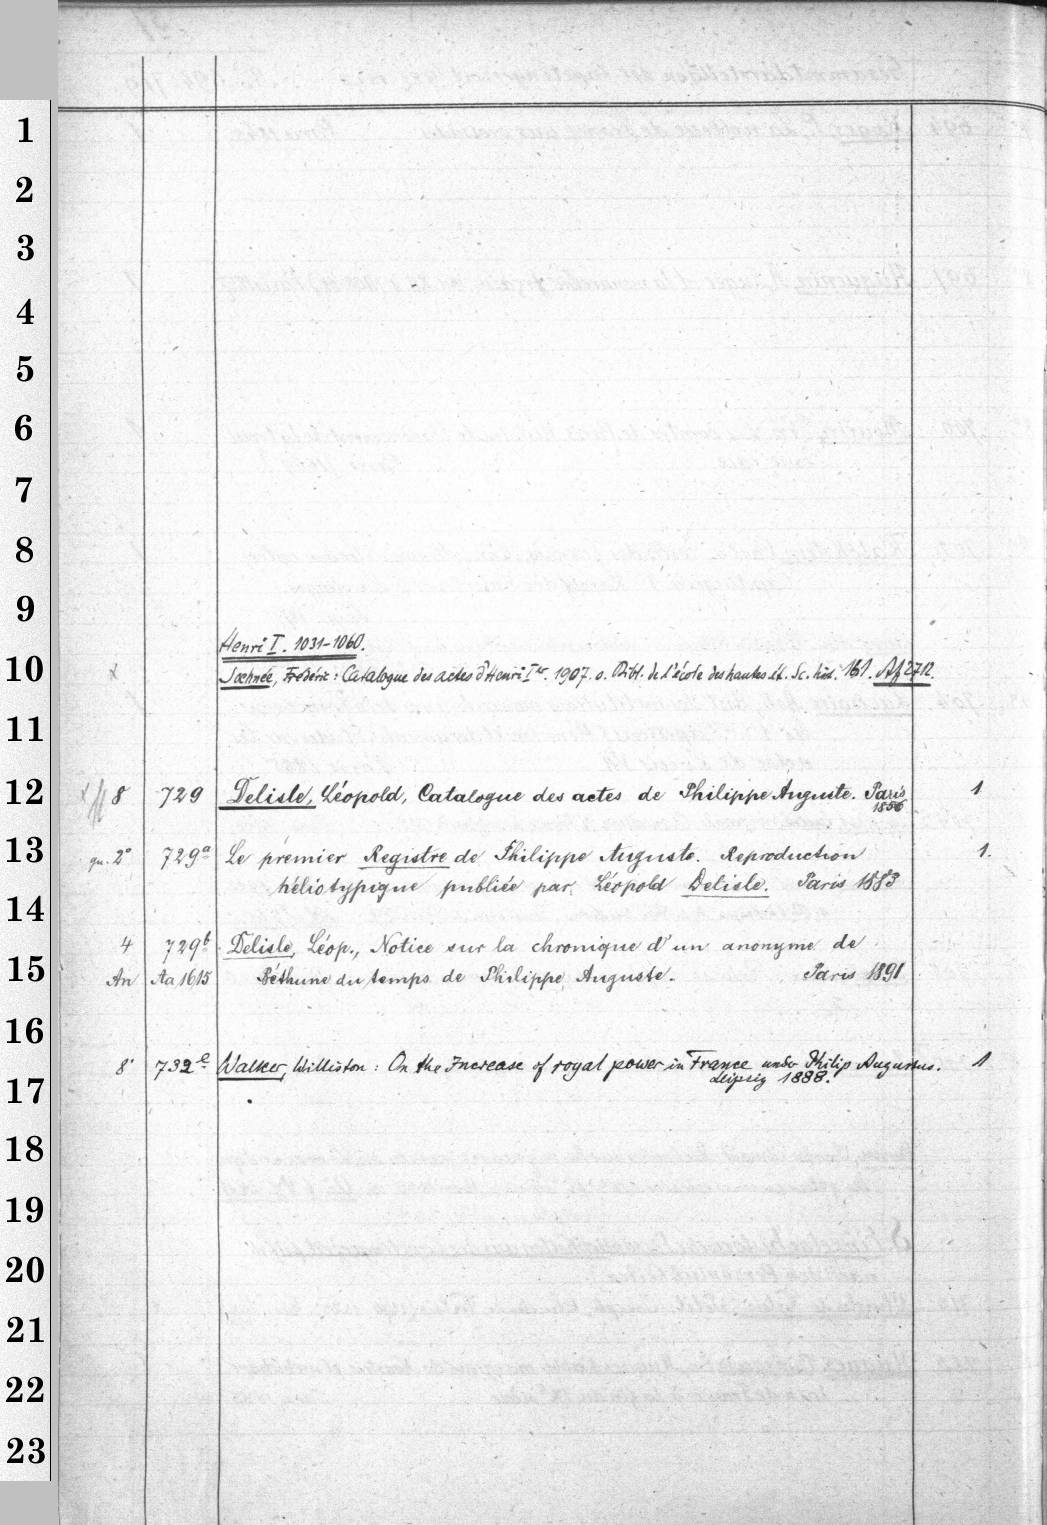 1
2
3
4
5
6
7
8
9
Henri I. 1031-1060.
10
Sœhnée, Frédéric: Catalogue des actes d'Henri Ier. 1907. s. Bibl. de l'école des hautes ét. Sc. hist. 161. Af 2712.
11
12 8 729 Delisle, Léopold, Catalogue des actes de Philippe Auguste. Paris 1
1856
13 qu. 2° 729a Le premier Registre de Philippe Auguste. Reproduction 1.
héliotypique publiée par Léopold Delisle. Paris 1883
14
4 729b Delisle, Léop., Notice sur la chronique d'un anonyme de
15 An Aa 1615 Béthune du temps de Philippe Auguste. Paris 1891
16
8° 732e Walker, Williston: On the Increase of royal power in France under Philip Augustus. 1
Leipzig 1888.
17
18
19
20
21
22
23